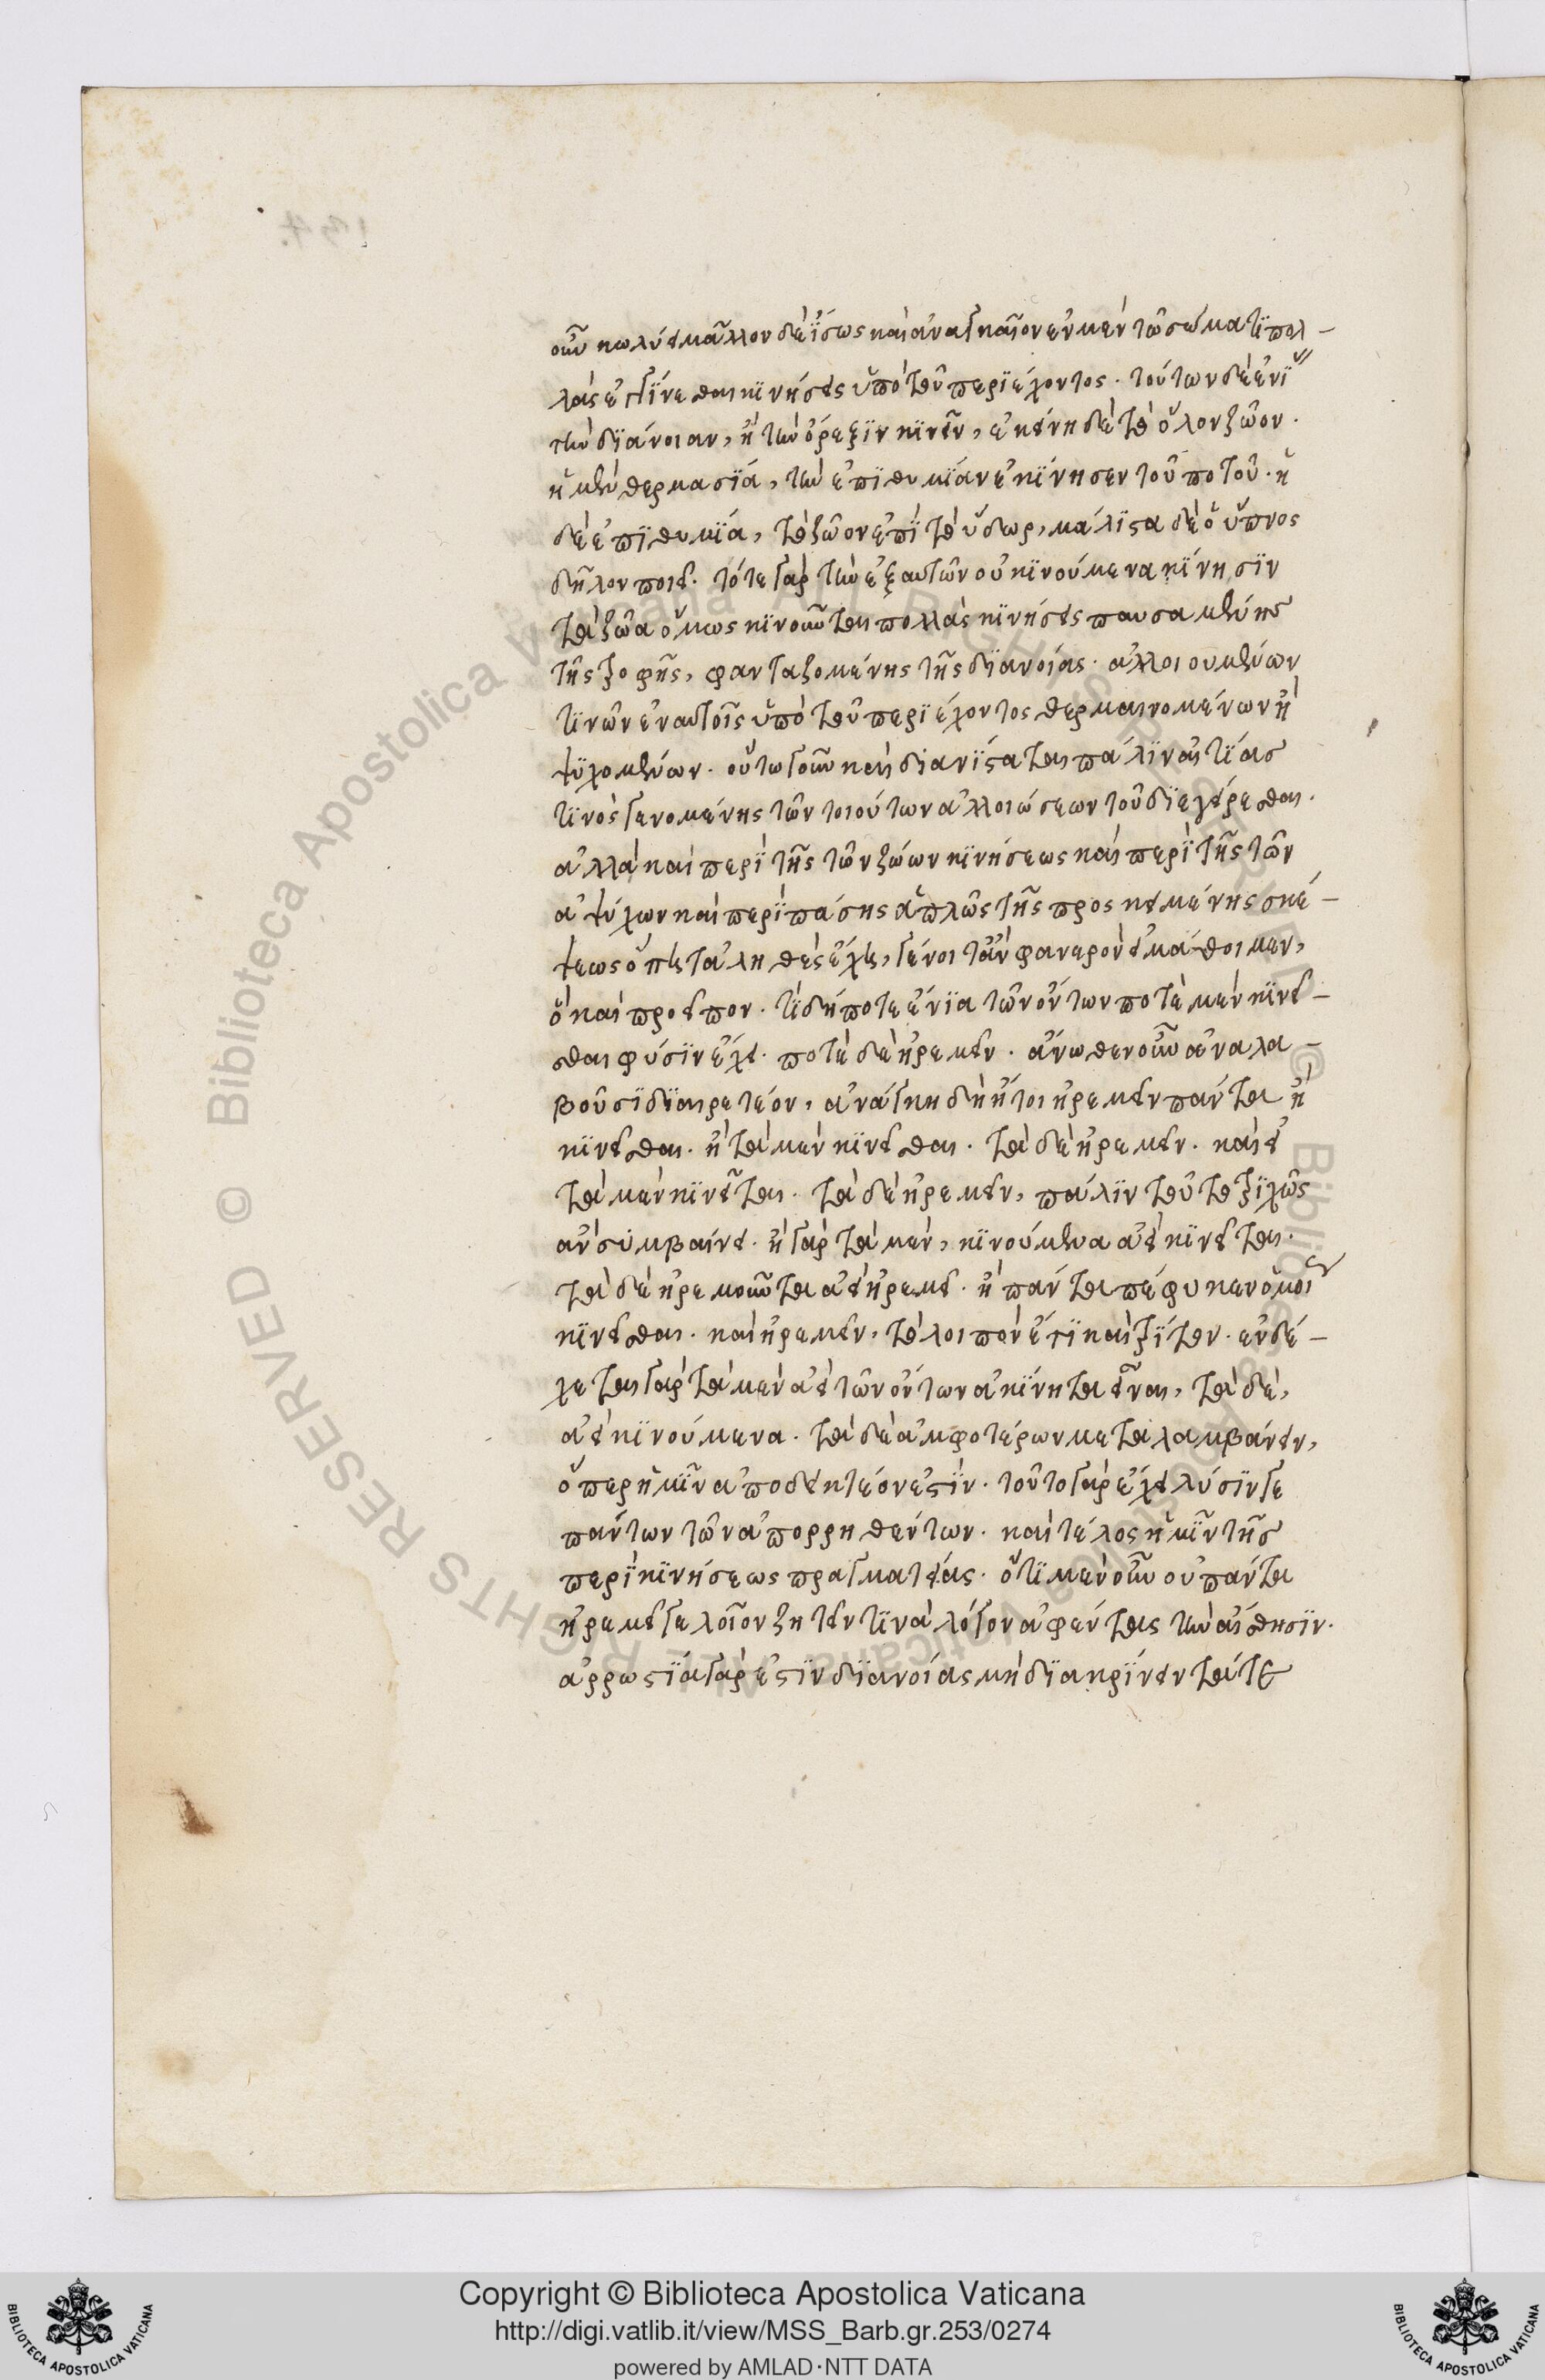 134.
οὖν κωλύει μᾶλλον δὲ ἴσως καὶ ἀναγκαῖον ἐν μὲν τῶ σώματι πολ-
λὰς ἐγγίνεσθαι κινήσεις ὑπὸ τοῦ περιέχοντος. τούτων δὲ ἐνι
τὴν διάνοιαν, ἢ τὴν ὄρεξιν κινεῖν, ἐκείνη δὲ τὸ ὅλον ζῶον.
ἡ μὲν θερμασία, τὴν ἐπιθυμίαν ἐκίνησεν τοῦ ποτοῦ. ἡ
δὲ ἐπιθυμία, τὸ ζῶον ἐπὶ τὸ ὕδωρ, μάλιστα δὲ ὁ ὕπνος
δῆλον ποιεῖ. τότε γὰρ τὴν ἐξ αυτῶν οὐ κινούμενα κίνησιν
τὰ ζῶα ὅμως κινοῦνται πολλὰς κινήσεις παυσαμένης
τῆς τροφῆς, φανταζομένης τῆς διανοίας. ἀλλοιουμένων
τινῶν ἐν αυτοῖς ὑπὸ τοῦ περιέχοντος θερμαινομένων ἢ
ψυχομένων. οὕτω γοῦν καὶ διανίσταται πάλιν αἰτίας
τινὸς γενομένης τῶν τοιούτων ἀλλοιώσεων τοῦ διεγείρεσθαι.
ἀλλὰ καὶ περὶ τῆς τῶν ζώων κινήσεως καὶ περὶ τῆς τῶν
ἀψύχων καὶ περὶ πάσης ἁπλῶς τῆς προσκειμένης σκέ-
ψεως ὅπῃ τἀληθὲς ἔχῃ, γένοιτ' ἂν φανερὸν εἰ μάθοιμεν,
ὃ καὶ προεῖπον. τί δήποτε ἔνια τῶν ὄντων ποτὲ μὲν κινεῖ-
σθαι φύσιν ἔχει. ποτὲ δὲ ἠρεμεῖν. ἄνωθεν οὖν ἀναλα-
βοῦσι διαιρετέον, ἀνάγκη δὴ ἤτοι ἠρεμεῖν πάντα ἢ
κινεῖσθαι. ἢ τὰ μὲν κινεῖσθαι. τὰ δὲ ἠρεμεῖν. καὶ εἰ
τὰ μὲν κινεῖται. τὰ δὲ ἠρεμεῖν, πάλιν τοῦτο τριχῶς
ἂν συμβαίνει. ἢ γὰρ τὰ μὲν, κινούμενα ἀεὶ κινεῖται.
τὰ δὲ ἠρεμοῦντα ἀεὶ ἠρεμεῖ. ἢ πάντα πέφυκεν ὁμοί
κινεῖσθαι. καὶ ἠρεμεῖν, τὸ λοιπὸν ἔτι καὶ τρίτον. ἐνδέ-
χεται γὰρ τὰ μὲν ἀεὶ τῶν ὄντων ἀκίνητα εἶναι, τὰ δὲ,
ἀεὶ κινούμενα. τὰ δὲ ἀμφοτέρων μεταλαμβάνειν,
ὅπερ ἡμῖν ἀποδεικτέον ἐστίν. τοῦτο γὰρ ἔχει λύσιν γε
πάντων τῶν ἀπορρηθέντων. καὶ τέλος ἡμῖν τῆς
περὶ κινήσεως πραγματείας. ὅτι μὲν οὖν οὐ πάντα
ἠρεμεῖ γελοῖον ζητεῖν τινὰ λόγον ἀφέντας τὴν αἴσθησιν.
ἀρρωστία γάρ ἐστιν διανοίας μὴ διακρίνειν τά τε